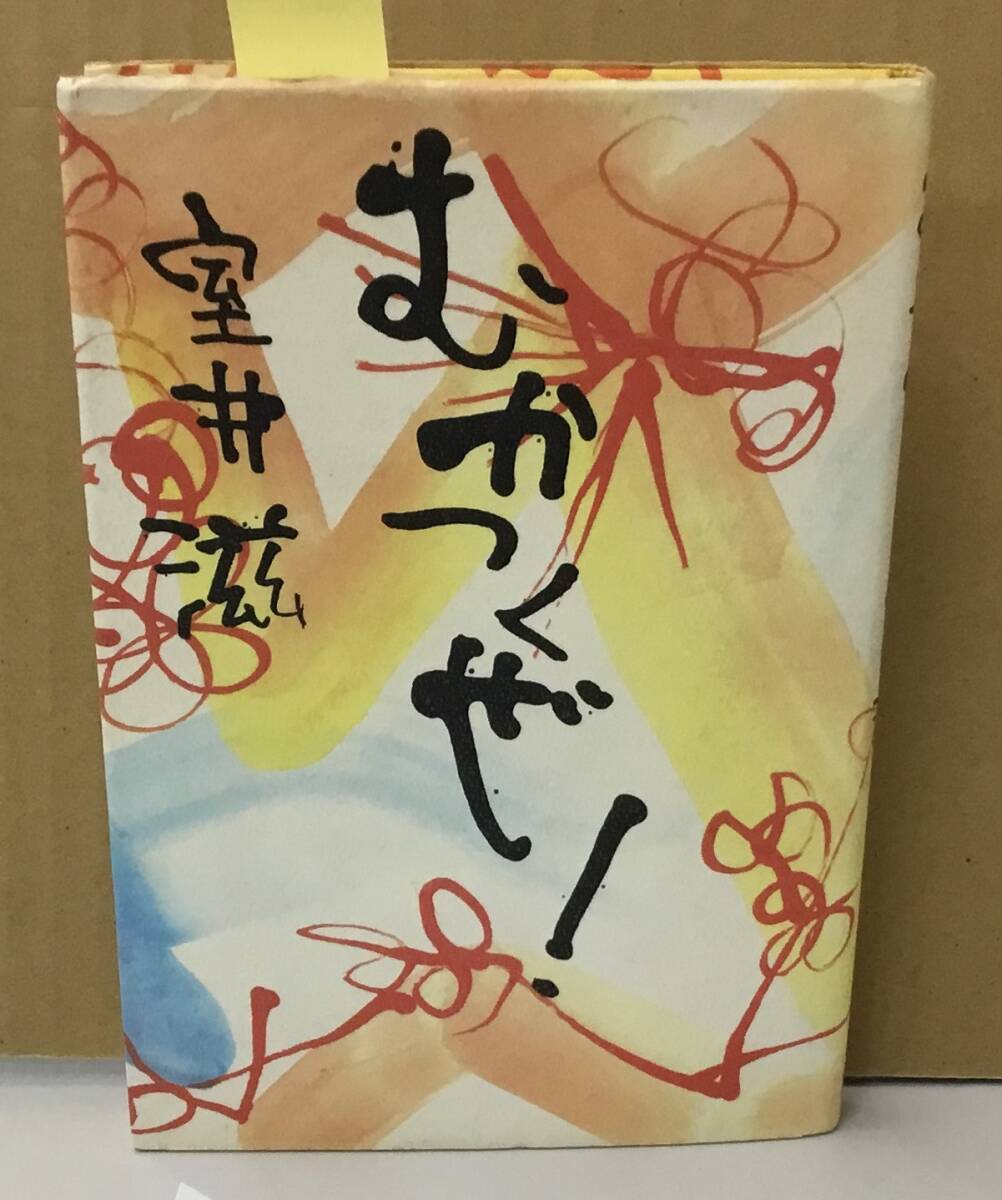 むかつくぜ!
室井滋